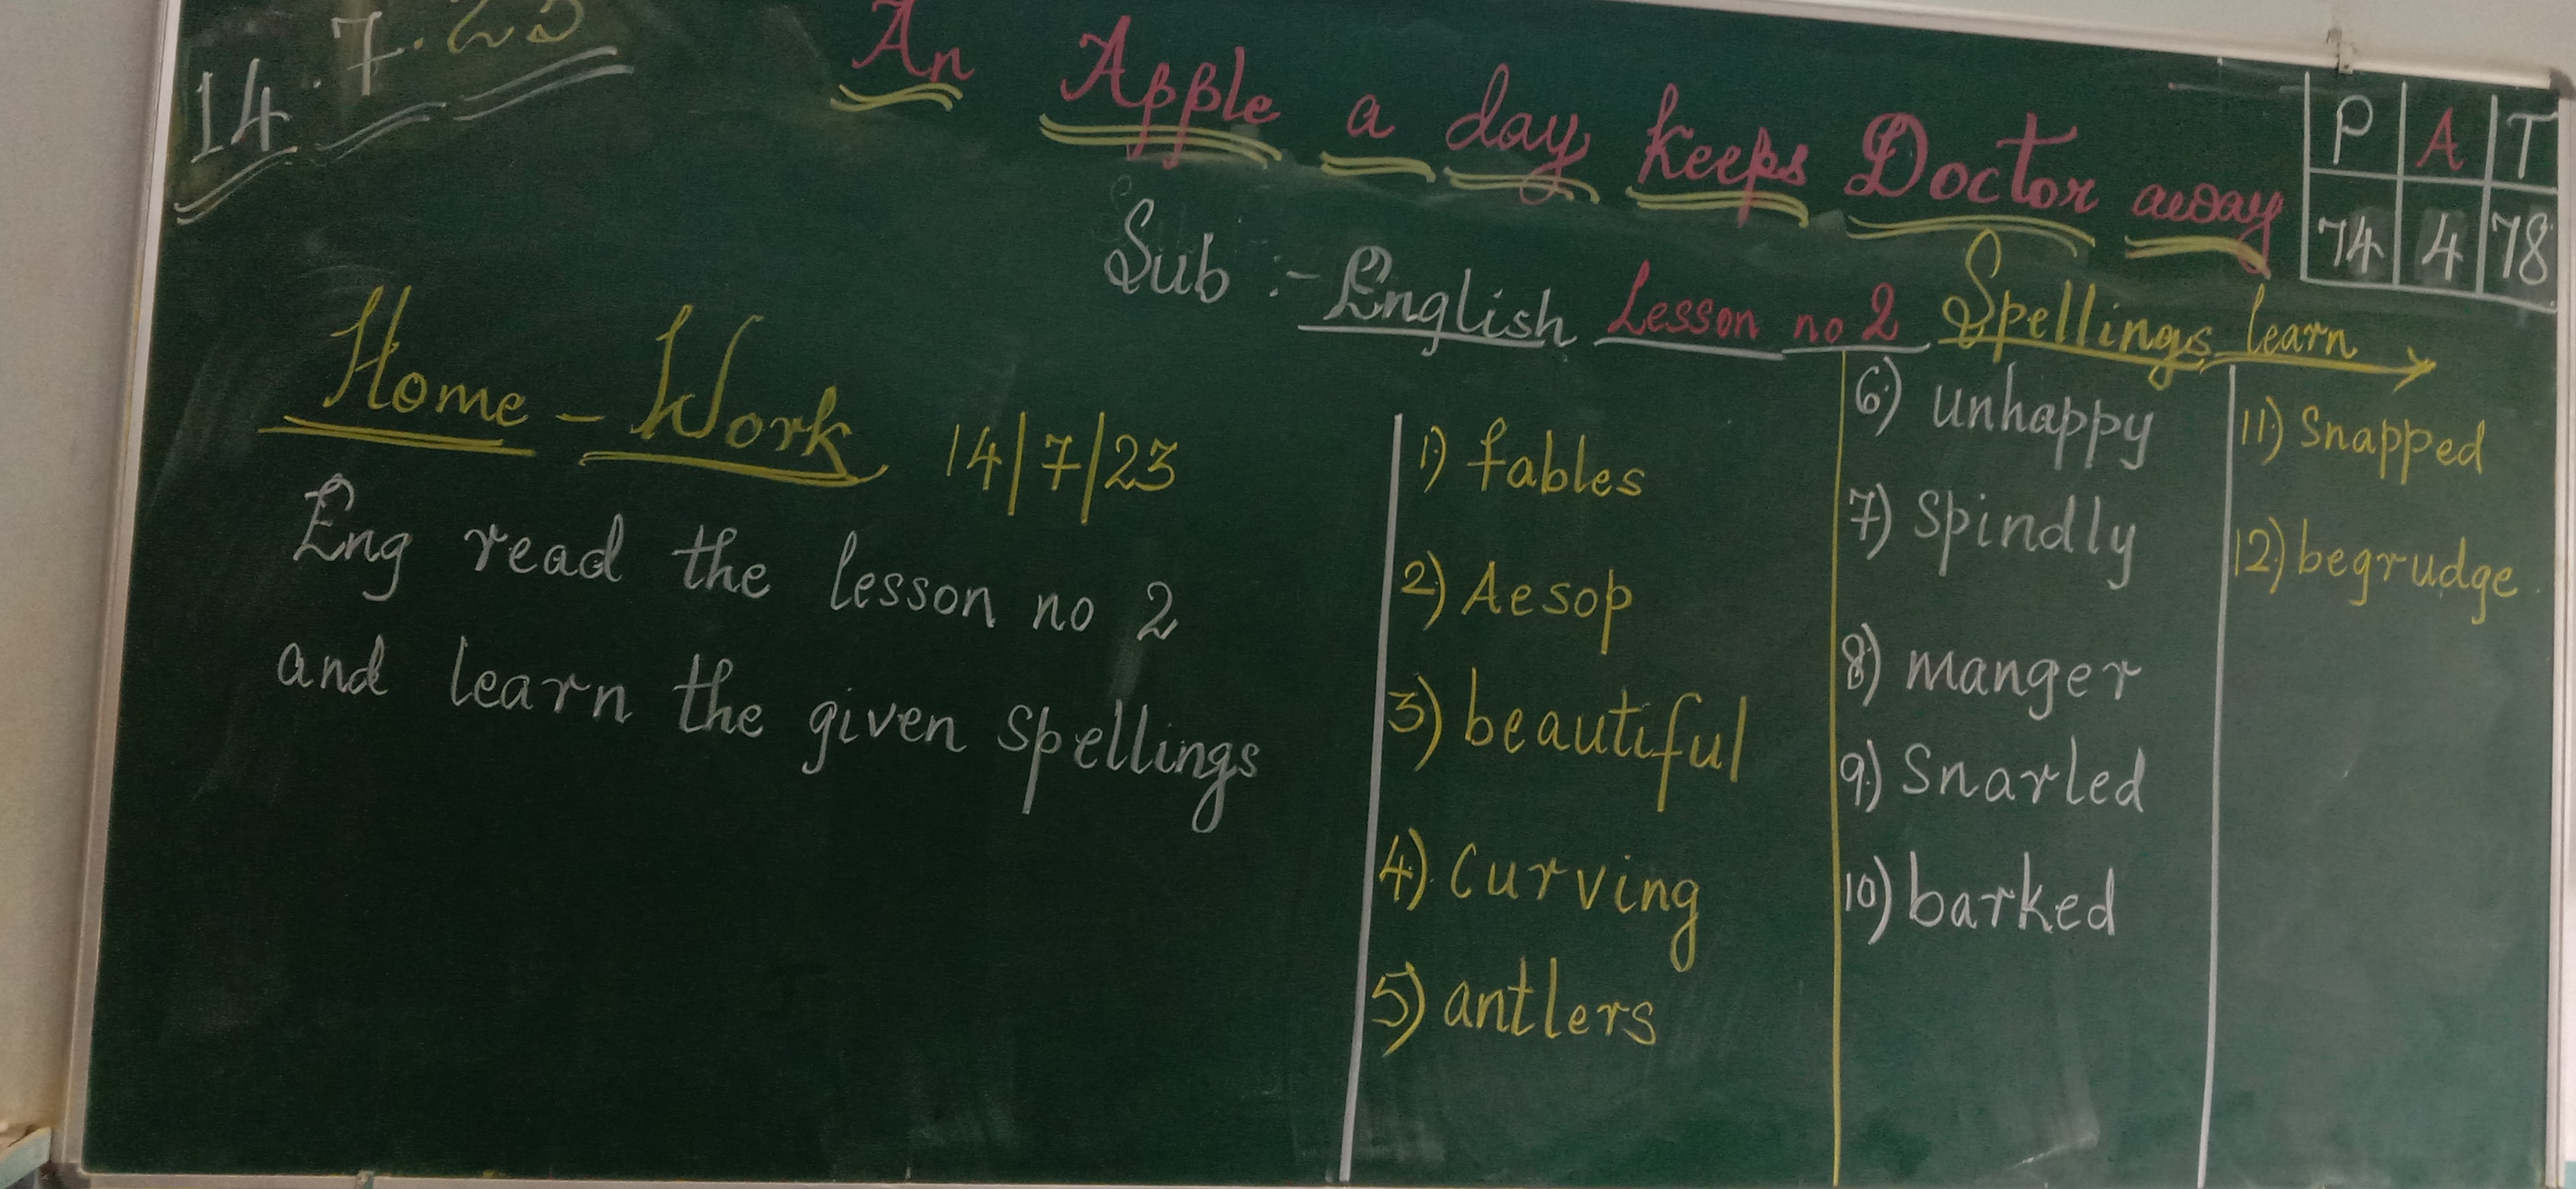 14.7.23
An Apple a day keeps Doctor away
P A T
74 4 78
Sub :- English Lesson no 2 Spellings learn
Home - Work 14/7/23
Eng read the lesson no 2
and learn the given spellings
1) fables
2) Aesop
3) beautiful
4) Curving
5) antlers
6) unhappy
7) Spindly
8) manger
9) Snarled
10) barked
11) Snapped
12) begrudge.